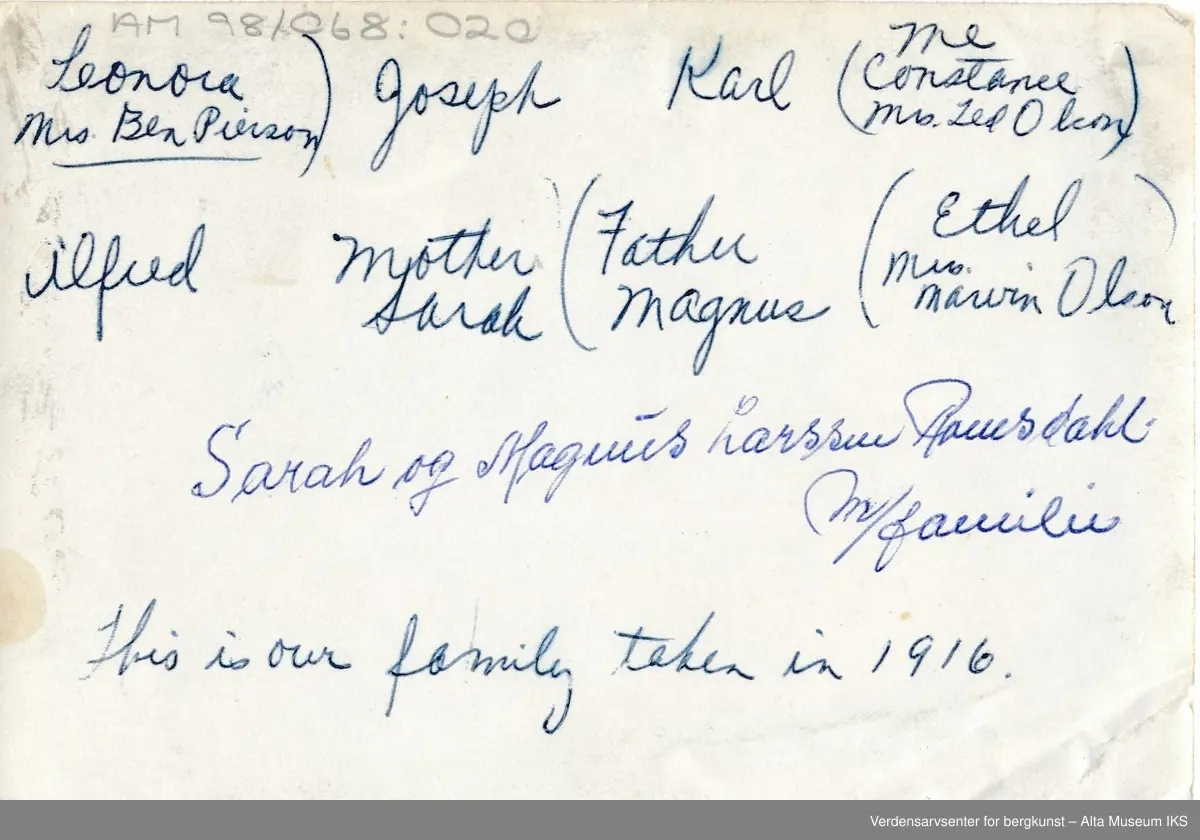 AM 98/068:020
Leonora
Mrs. Ben Pierson)
Joseph
Karl
(me
Constance
Mrs. Ted Olson)
Alfred
Mother
Sarah
(Father
Magnus
(Ethel)
Mrs.
Marvin Olson
Sarah og Magnus Larssen Romsdahl
m/familie
This is our family taken in 1916.
Verdensarvsenter for bergkunst – Alta Museum IKS